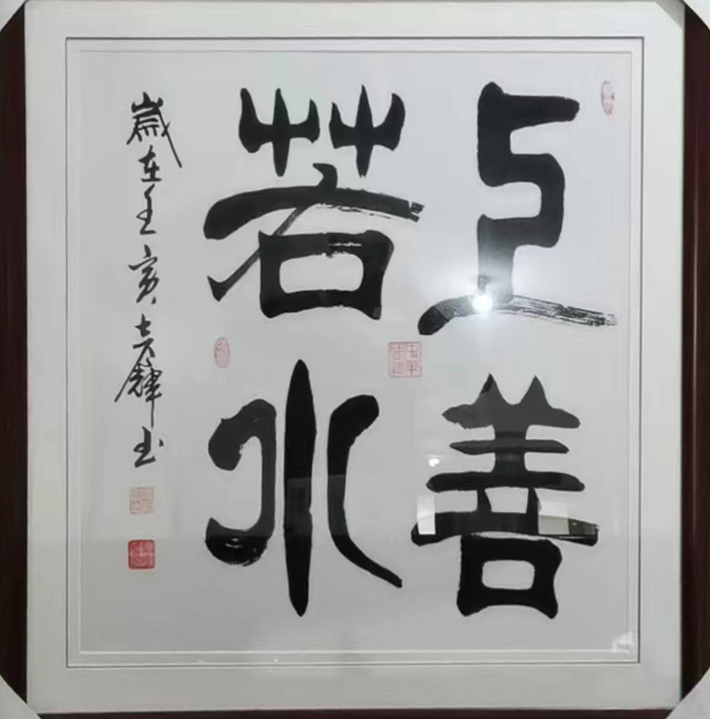 上善
若水
歲在壬寅 書